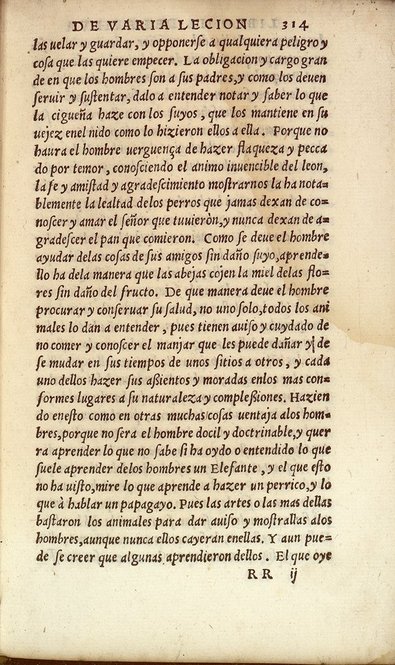 DE VARIA LECION 314
las velar y guardar, y opponerse a qualquiera peligro y
cosa que las quiere empecer. La obligacion y cargo gran
de en que los hombres son a sus padres, y como los deuen
seruir y sustentar, dalo a entender notar y saber lo que
la cigueña haze con los suyos, que los mantiene en su
uejez enel nido como lo hizieron ellos a ella. Porque no
haura el hombre verguença de hazer flaqueza y pecca
do por temor, conosciendo el animo inuencible del leon,
la fe y amistad y agradescimiento mostrarnos la ha nota-
blemente la lealtad de los perros que jamas dexan de co-
noscer y amar el señor que tuuieròn, y nunca dexan de a-
gradescer el pan que comieron. Como se deue el hombre
ayudar delas cosas de sus amigos sin daño suyo, aprende-
llo ha dela manera que las abejas cojen la miel delas flo-
res sin daño del fructo. De que manera deue el hombre
procurar y conseruar su salud, no uno solo, todos los ani
males lo dan a entender, pues tienen auiso y cuydado de
no comer y conoscer el manjar que les puede dañar y de
se mudar en sus tiempos de unos sitios a otros, y cada
uno dellos hazer sus assientos y moradas enlos mas con-
formes lugares a su naturaleza y complessiones. Hazien
do enesto como en otras muchas cosas ventaja alos hom-
bres, porque no sera el hombre docil y doctrinable, y quer
ra aprender lo que no sabe si ha oydo o entendido lo que
suele aprender delos hombres un Elefante, y el que esto
no ha uisto, mire lo que aprende a hazer un perrico, y lo
que à hablar un papagayo. Pues las artes o las mas dellas
bastaron los animales para dar auiso y mostrallas alos
hombres, aunque nunca ellos cayeran enellas. Y aun pue-
de se creer que algunas aprendieron dellos. El que oye
RR ij